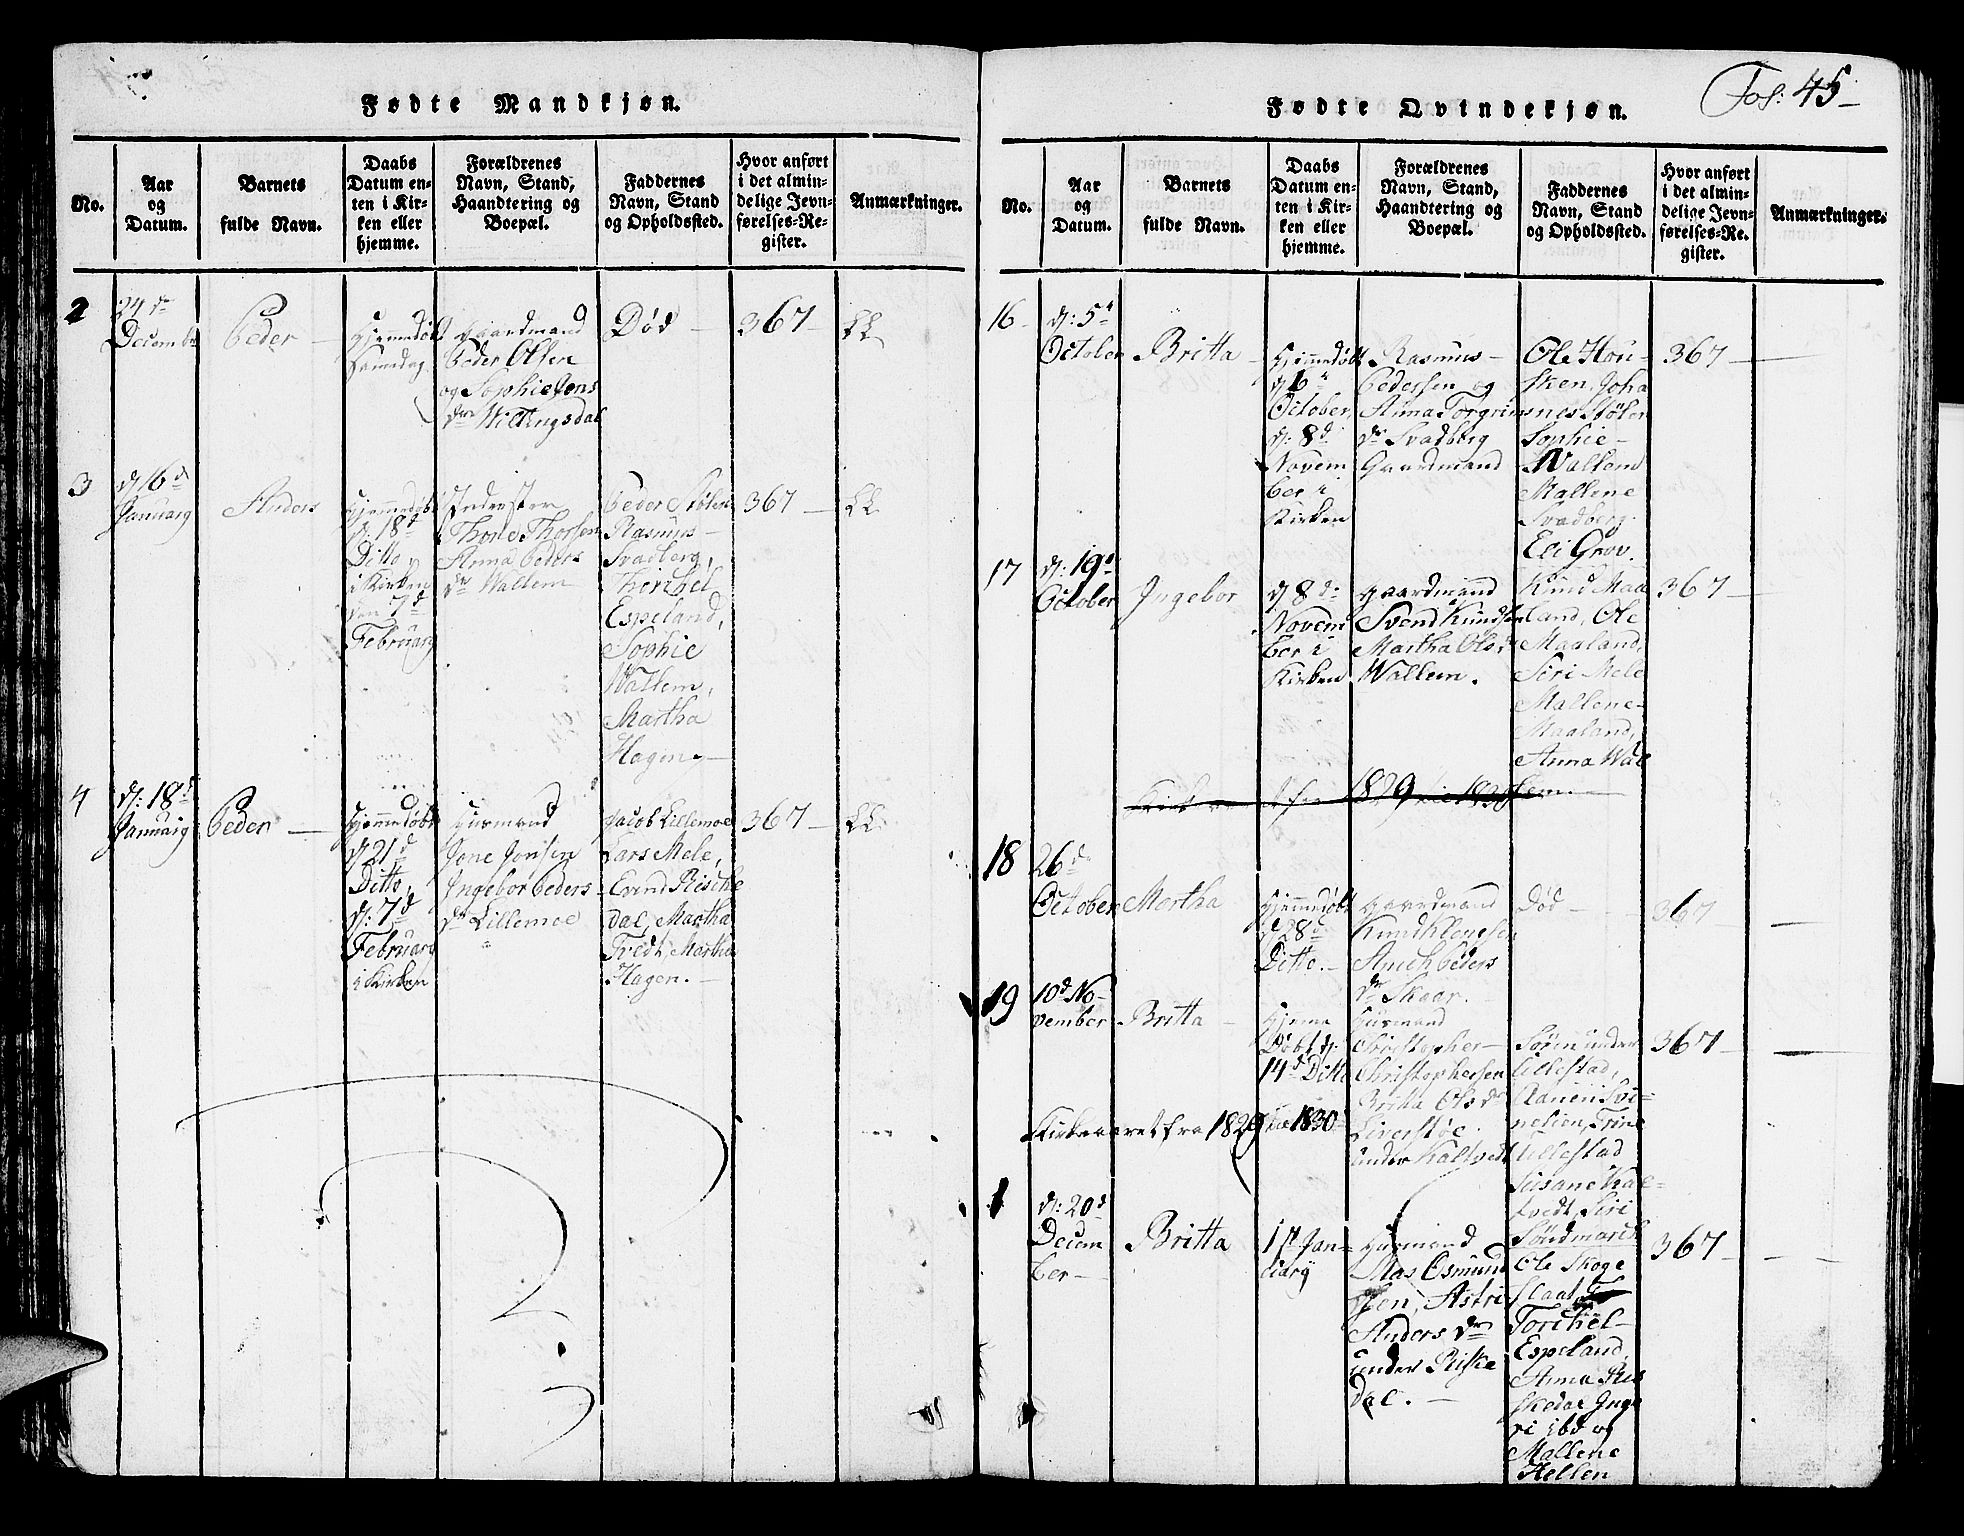 Fødte Mandkjøn.
No.
Aar
og
Datum.
Barnets
fulde Navn.
Daabs
Datum en-
ten i Kir-
ken eller
hjemme.
Forældrenes
Navn, Stand,
Haandtering og
Boepæl.
Faddernes
Navn, Stand
og Opholdssted.
Hvor anført
i det almin-
delige Jevn-
førelses-Re-
gister.
Anmærkninger.
2
24 de
Decembr
Peder
Hjemmedøbt
Samedag
Gaardmand
Peder Olsen
og Sophie Jons
dr Willingsdal
Død
367
3
d 16 d
Januarij
Anders
Hjemmedøbt
d: 18 d
Ditto,
i Kirken
den 7 d
Februarij
Thone Thorsen
Anna Peders
dr Wallem
Peder Stølen
Rasmus
Svadberg,
Thorchel
Espeland,
Sophie
Wallem,
Martha
Hagen
367
4
d: 18 d
Januarij
Peder
Hjemmedøbt
d 21 d
Ditto,
d: 7 d
Februarij
i Kirken
Huusmand
Jone Jonsen
Ingebor Peders
dr Lillemoe
Jacob Lillemoe
Lars Mele,
Evind Riske
dal, Martha
Tvedt, Martha
Hagen.
367
Fol: 45
Fødte Qvindekjøn.
No.
Aar
og
Datum.
Barnets
fulde Navn.
Daabs
Datum en-
ten i Kir-
ken eller
hjemme.
Forældrenes
Navn, Stand,
Haandtering og
Boepæl.
Faddernes
Navn, Stand
og Opholdssted.
Hvor anført
i det almin-
delige Jevn-
førelses-Re-
gister.
Anmærkninger.
16
d: 5 t
October
Britta
Hjemmedøbt
d 6 t
October,
d: 8 d
Novem
ber i
Kirken
Rasmus
Pedersen og
Anna Torgrims
dr Svadberg
Gaardmand
Ole Hou-
sken, Joha
nes Stølen
Sophie
Wallem
Mallene
Svadberg
Eli Grov.
367
17
d: 19 d
October
Ingebor
d 8 d
Novem
ber i
Kirken
Gaardmand
Svend Knudsen
Martha Ols d
Wallem.
Knud Maa
land, Ole
Maaland,
Siri Mele
Mallene
Maaland,
Anna Wal
lem.
367
1829 1830
18
26 d
October
Mortha
Hjemmedøbt
d 28 d
Ditto.
Gaardmand
Knud
Peders
dr Skaar.
Død
367
19
10 d No-
vember
Britta
Hjemme
Døbt d:
14 d Ditto
Huusmand
Christopher
Christophersen
Britta Ols dr
Liverstøe
under Kaltvedt
Søren under
Lillestad,
Trine
Lillestad
Susane Kal-
tvedt, Siri
Søndmarch
367
Kirkeaaret fra 1829 til 1830
1
d: 20 d
Decem
ber
Britta
17 Jan-
uarij
Huusmand
Mas Osmund
sen, Astri
Anders dr
under Riske
dal.
Ole Skoge
slaat
Torchel
Espeland,
Anna Ris
kedal Inge
ri ibd og
Mallene
Hellen
367